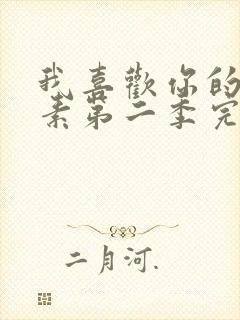 我喜歡你的
素第二季完
二月河.